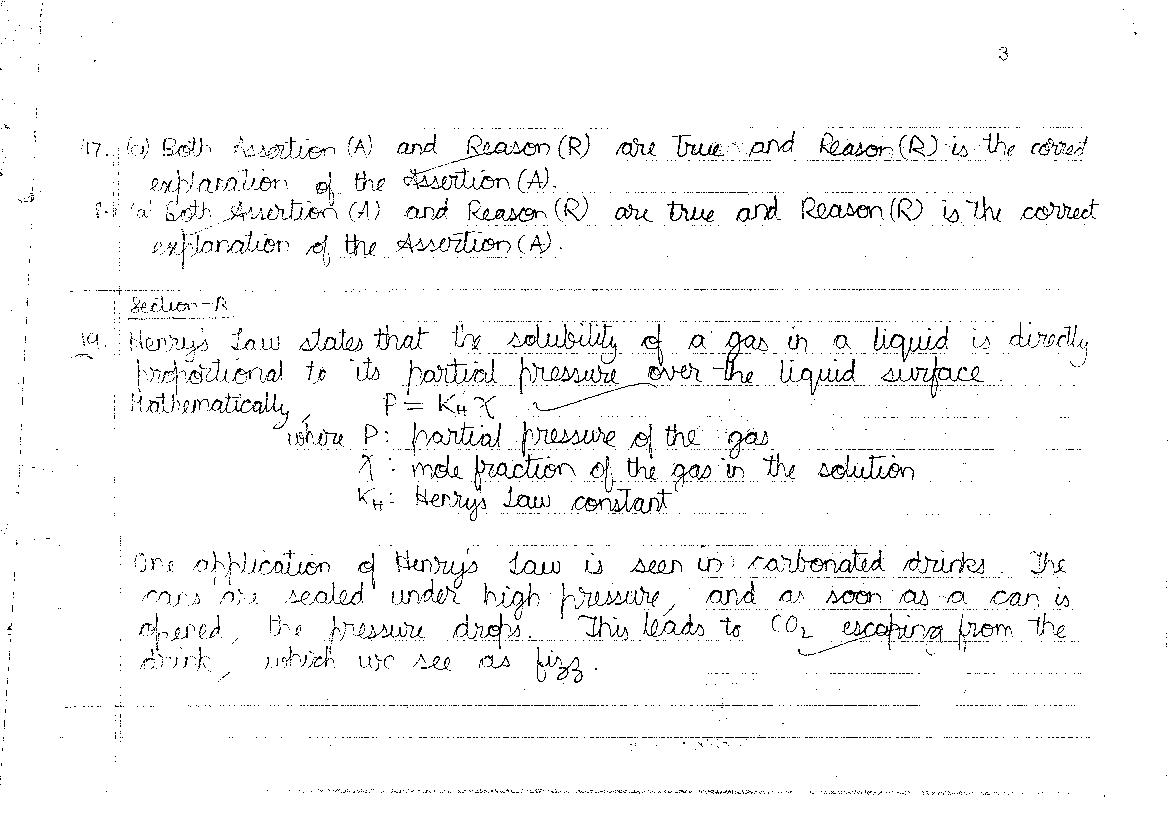 3
17. (a) Both Assertion (A) and Reason (R) are True and Reason (R) is the correct
explanation of the Assertion (A).
8. (a) Both Assertion (A) and Reason (R) are true and Reason (R) is the correct
explanation of the Assertion (A).
Section-B
19. Henry's Law states that the solubility of a gas in a liquid is directly
proportional to its partial pressure over the liquid surface
Mathematically, P = K_H χ
where P: partial pressure of the gas
χ: mole fraction of the gas in the solution
K_H: Henry's Law constant
One application of Henry's Law is seen in carbonated drinks. The
cans are sealed under high pressure, and as soon as a can is
opened, the pressure drops. This leads to CO₂ escaping from the
drink, which we see as fizz.